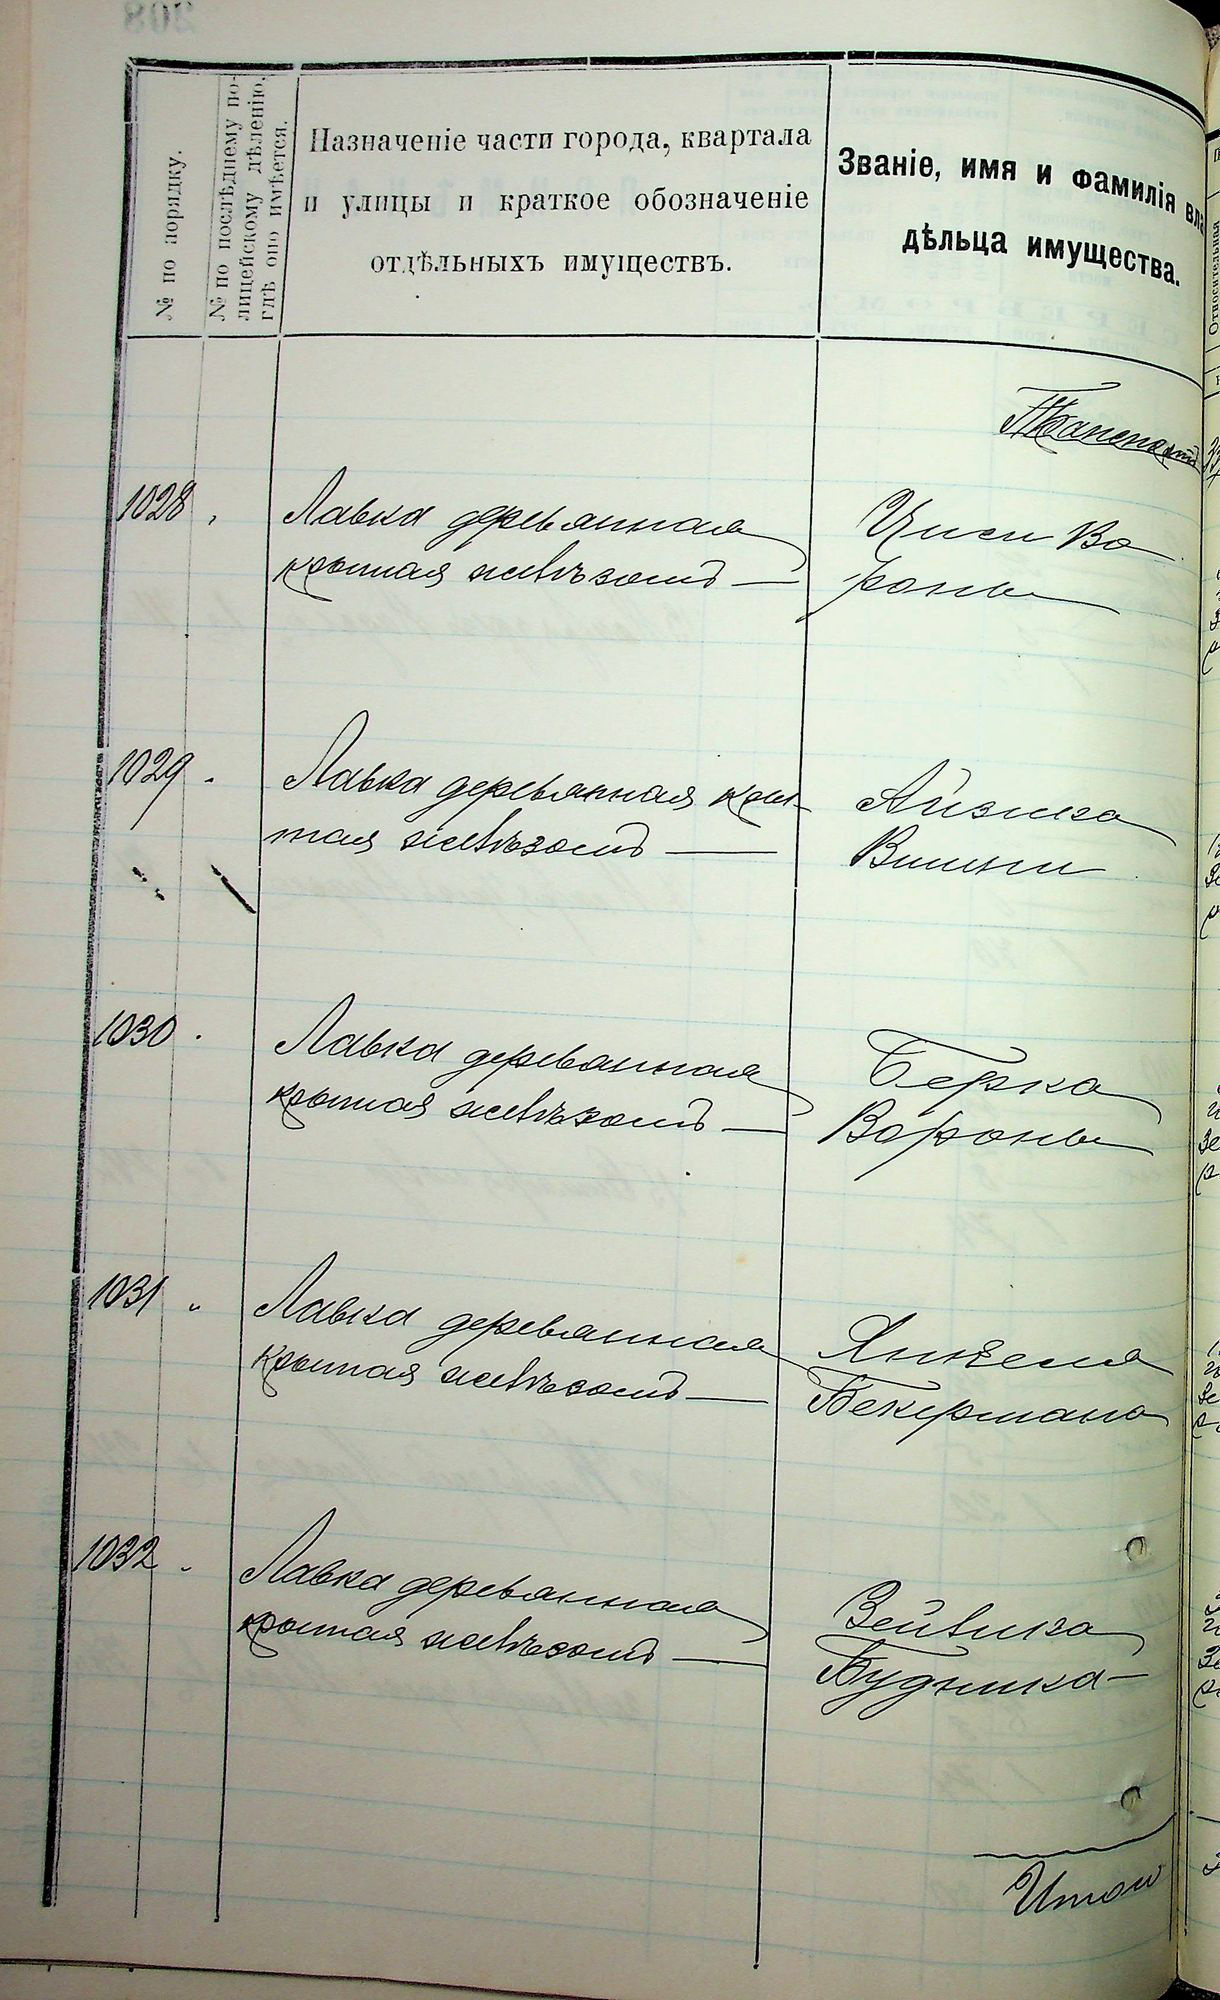 № по порядку.
№ по послѣднему по-
лицейскому дѣленію,
гдѣ оно имѣется.
Назначеніе части города, квартала
и улицы и краткое обозначеніе
отдѣльныхъ имуществъ.
Званіе, имя и фамилія вла
дѣльца имущества.
1028
Лавка деревянная
Крытая желѣзомъ —
Во
роны
1029
Лавка деревянная кры-
тая желѣзомъ —
Айзика
1030
Лавка деревянная
Крытая желѣзомъ —
Берка
Вороны
1031
Лавка деревянная
Крытая желѣзомъ —
Янкеля
Бекермана
1032
Лавка деревянная
крытая желѣзомъ —
Зейлика
Будника —
Итого